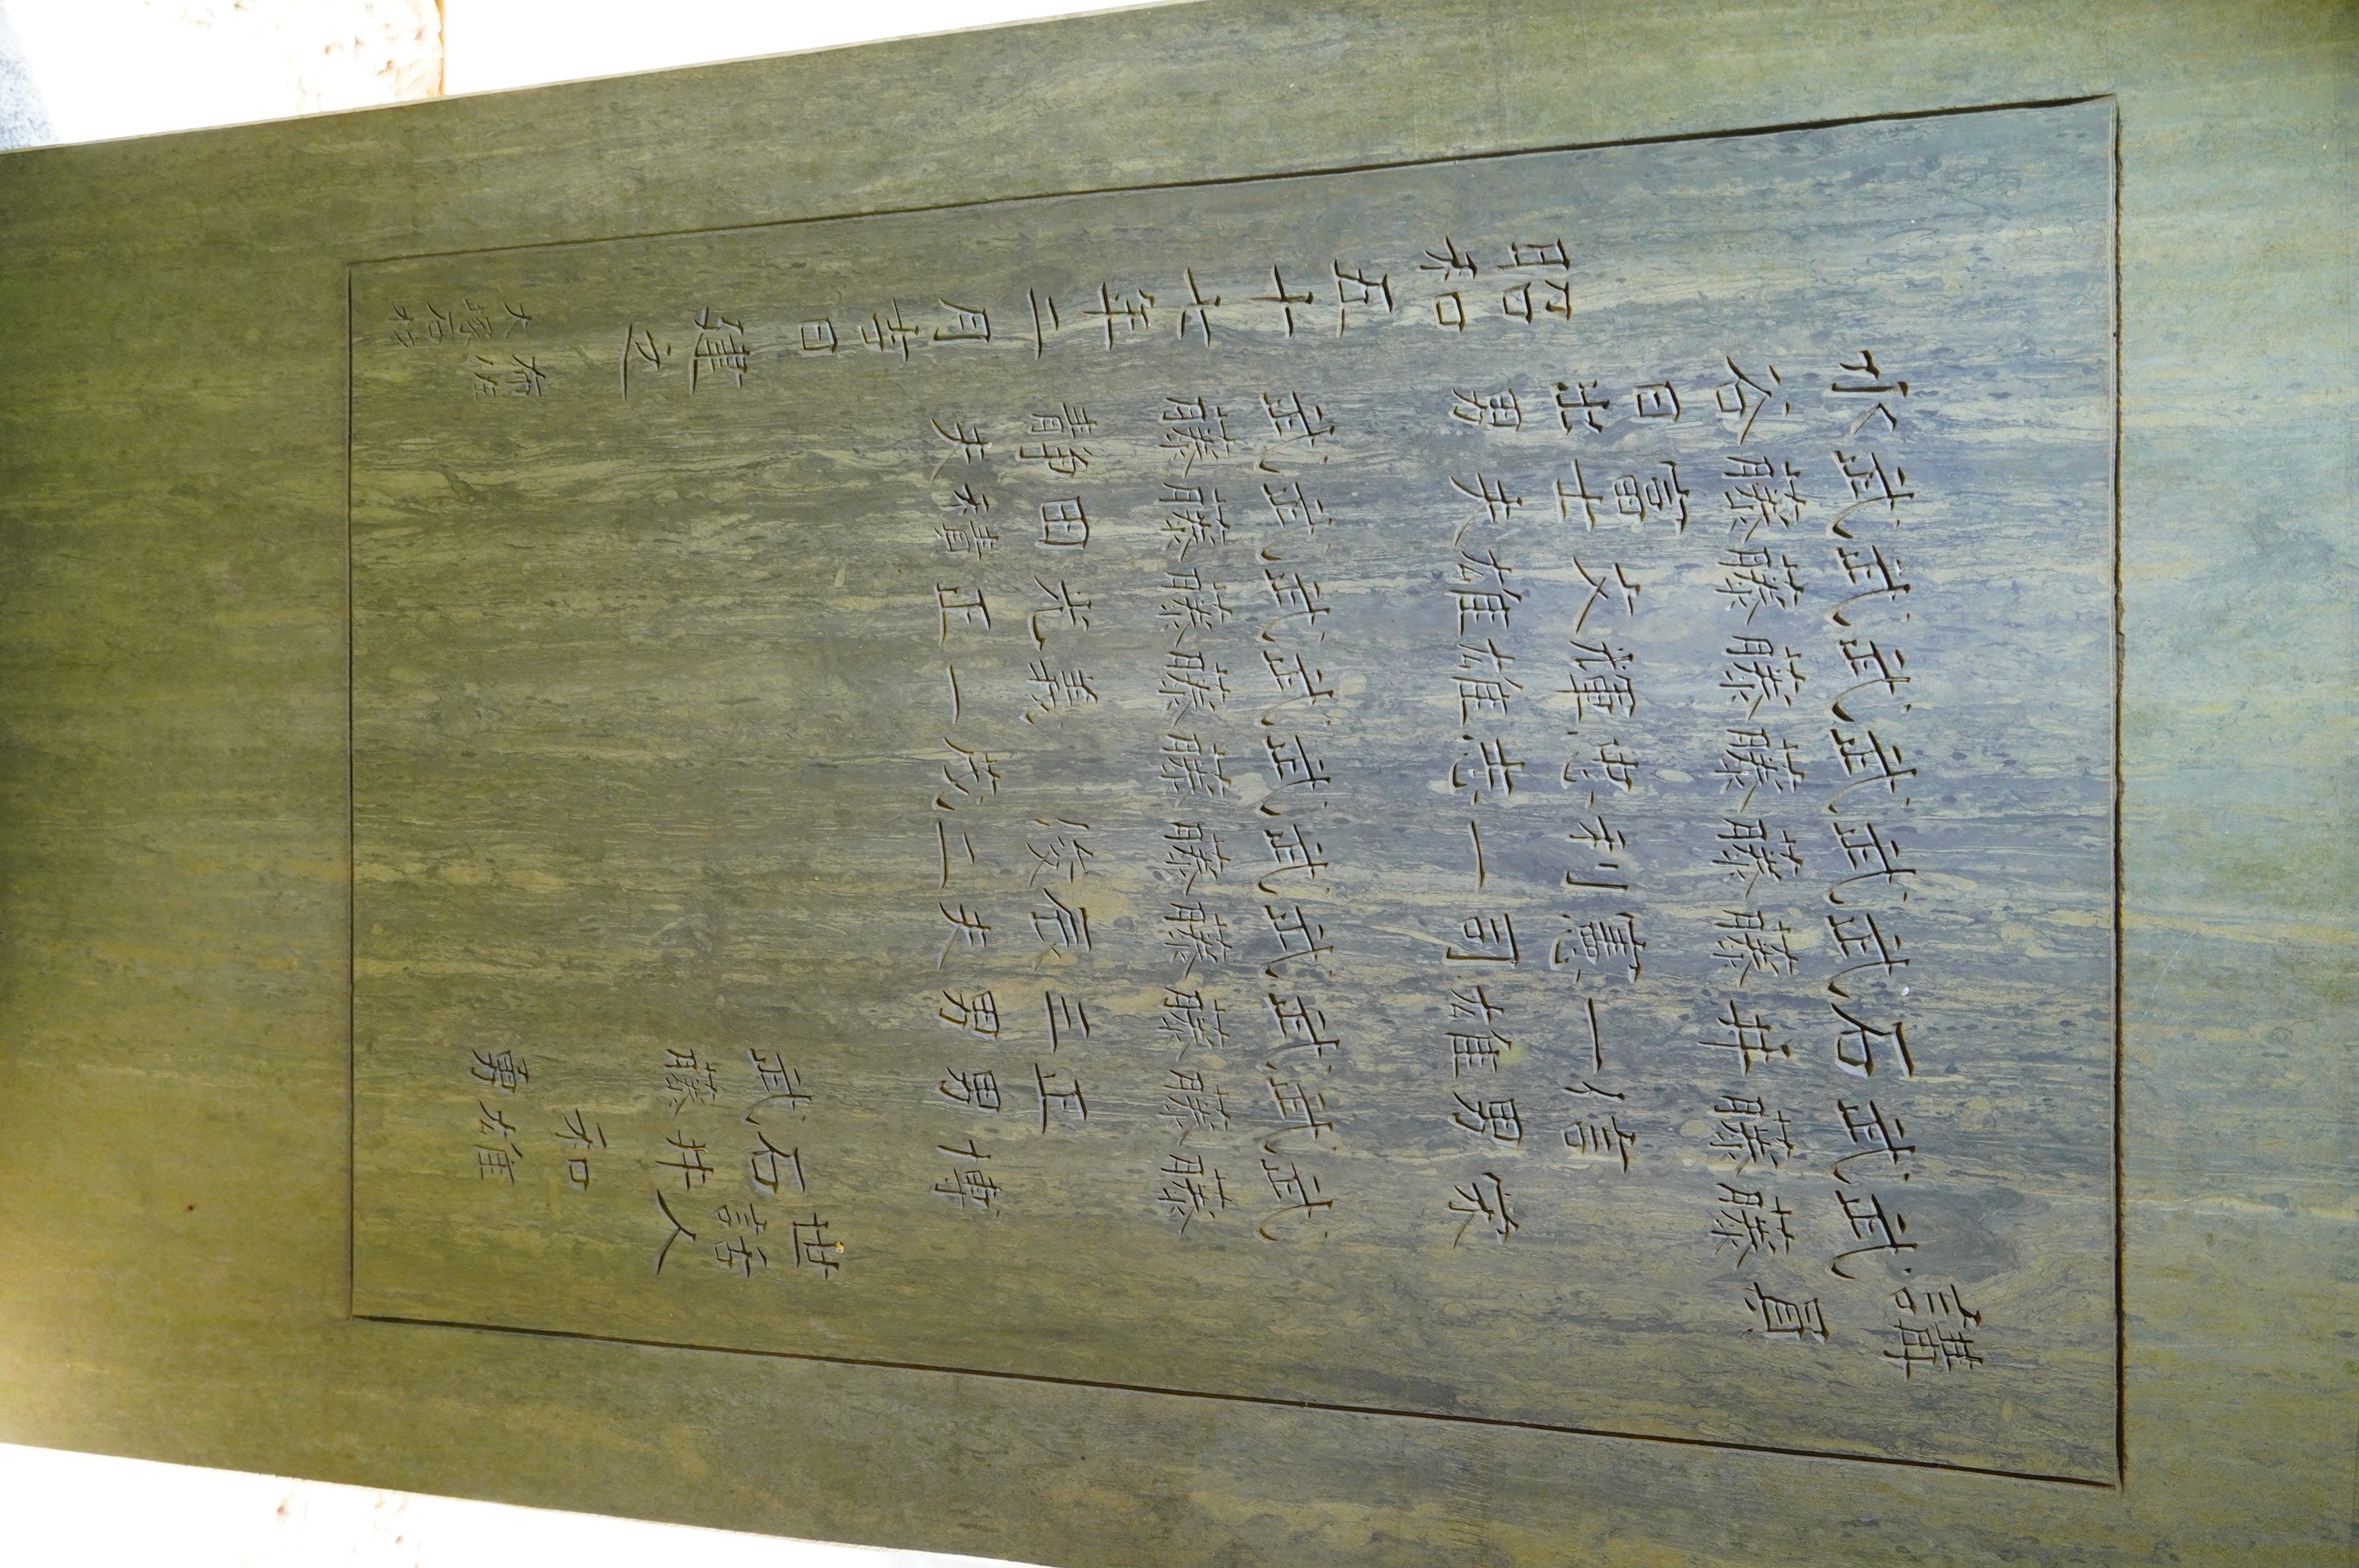 講員
武藤 栄
武藤信男
石井一雄
武藤憲司
武藤利一
武藤忠志
武藤輝雄
武藤文雄
武藤富士夫
水谷日出男
武藤 博
武藤正男
武藤三男
武藤辰夫
武藤俊二
武藤 茂
武藤義一
武藤光正
武藤田積
武藤静夫
世話人
石井和雄
武藤 勇
昭和五十六年二月吉日 建立
布佐
大塚石材